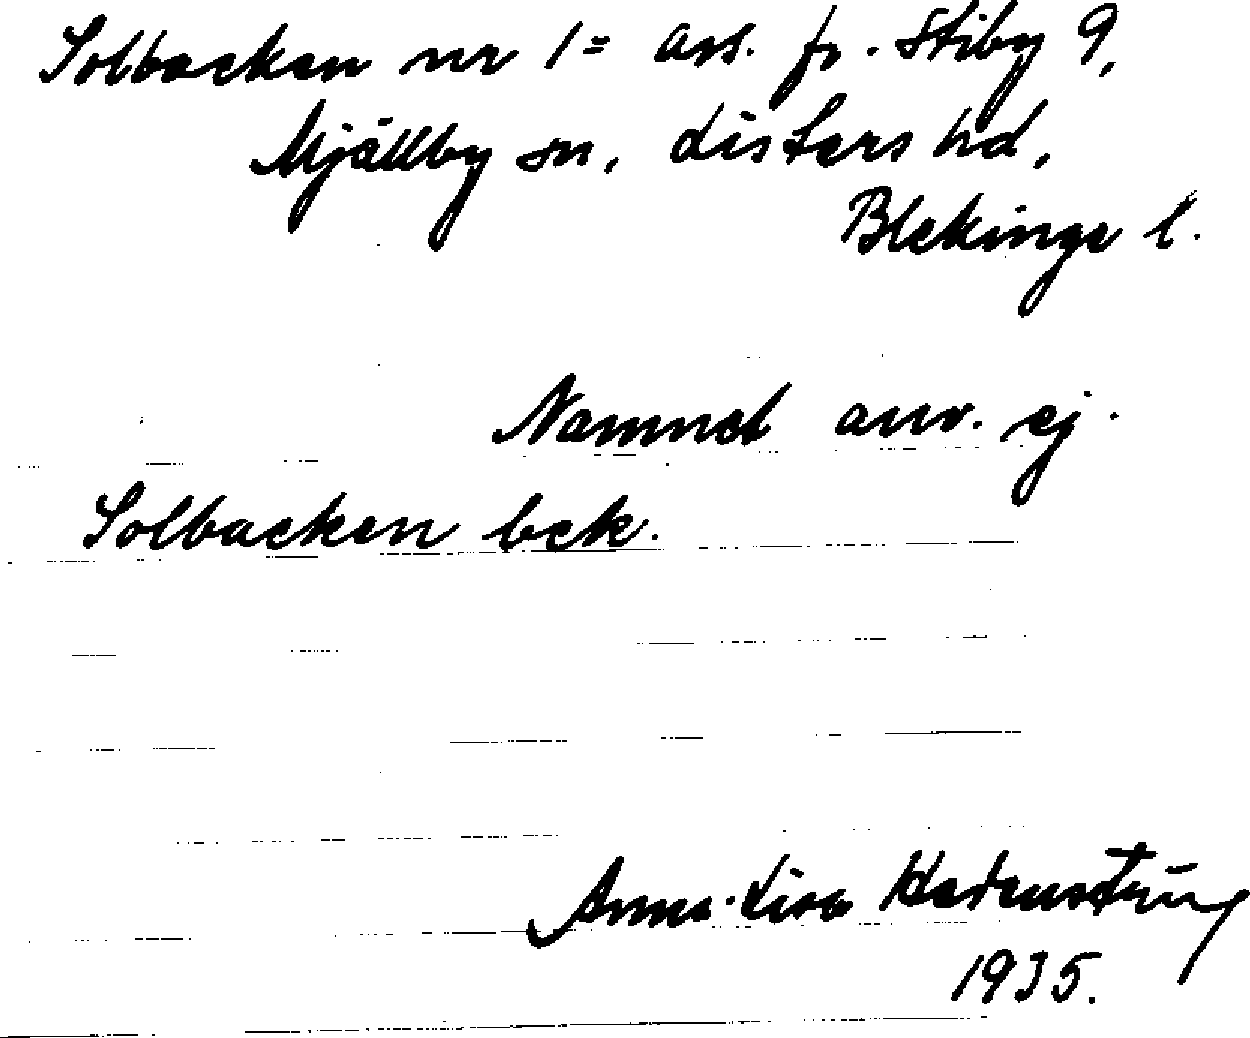 Solbacken nr 1 = avs. fr. Stiby 9,
Mjällby sn, Listers hd,
Blekinge l.
Namnet anv. ej.
Solbacken bek.
Anna-Lisa Hedenstring
1935.